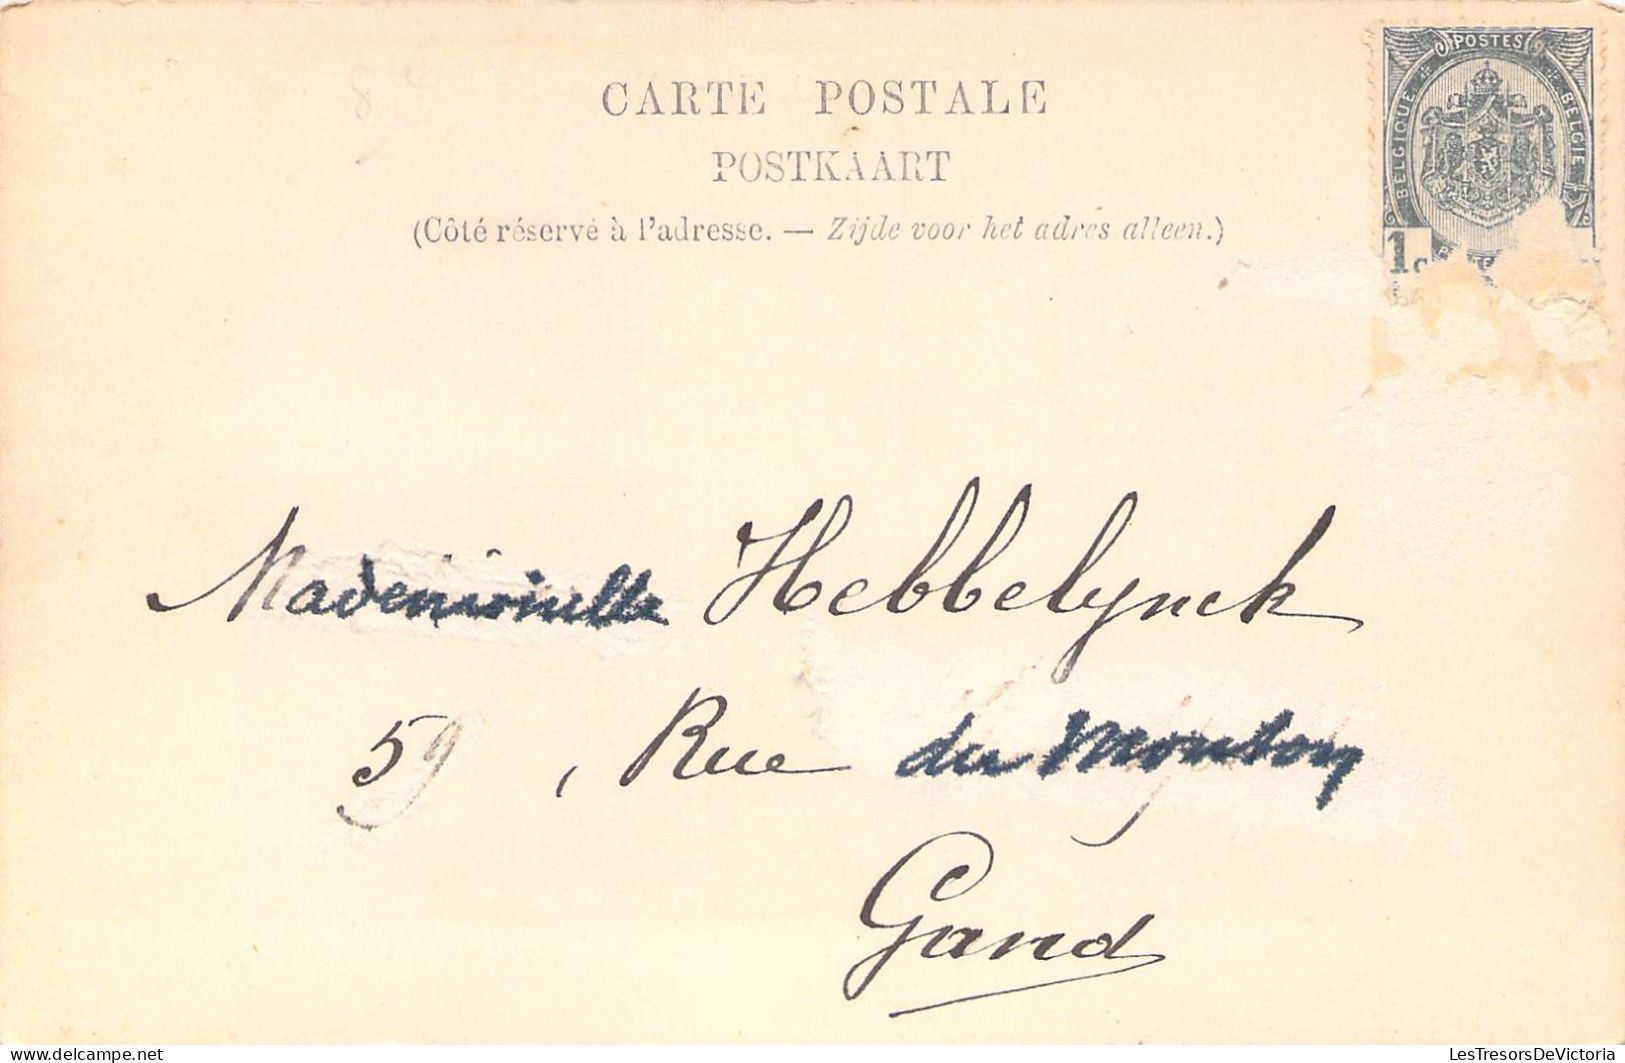 CARTE POSTALE
POSTKAART
(Côté réservé à l'adresse. — Zijde voor het adres alleen.)
POSTES
BELGIQUE
BELGIE
1c
Mademoiselle Hebbelynck
59, Rue du Mouton
Gand
www.delcampe.net
LesTresorsDeVictoria